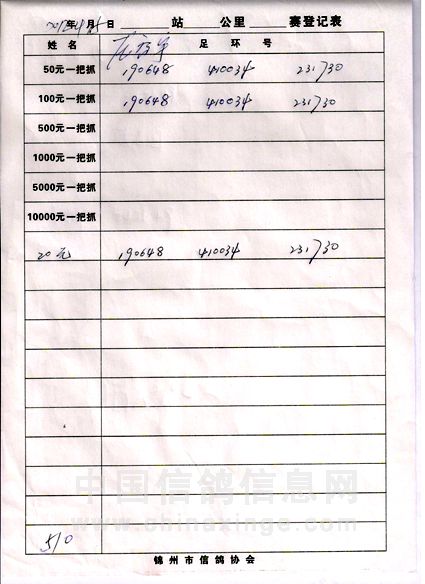 年 月 日 站 公里 赛登记表
姓名 足环号
50元一把抓 190648 410034 231730
100元一把抓 190648 410034 231730
500元一把抓
1000元一把抓
5000元一把抓
10000元一把抓
20元 190648 410034 231730
中国信鸽信息网
www.chinaxinge.com
510
锦州市信鸽协会